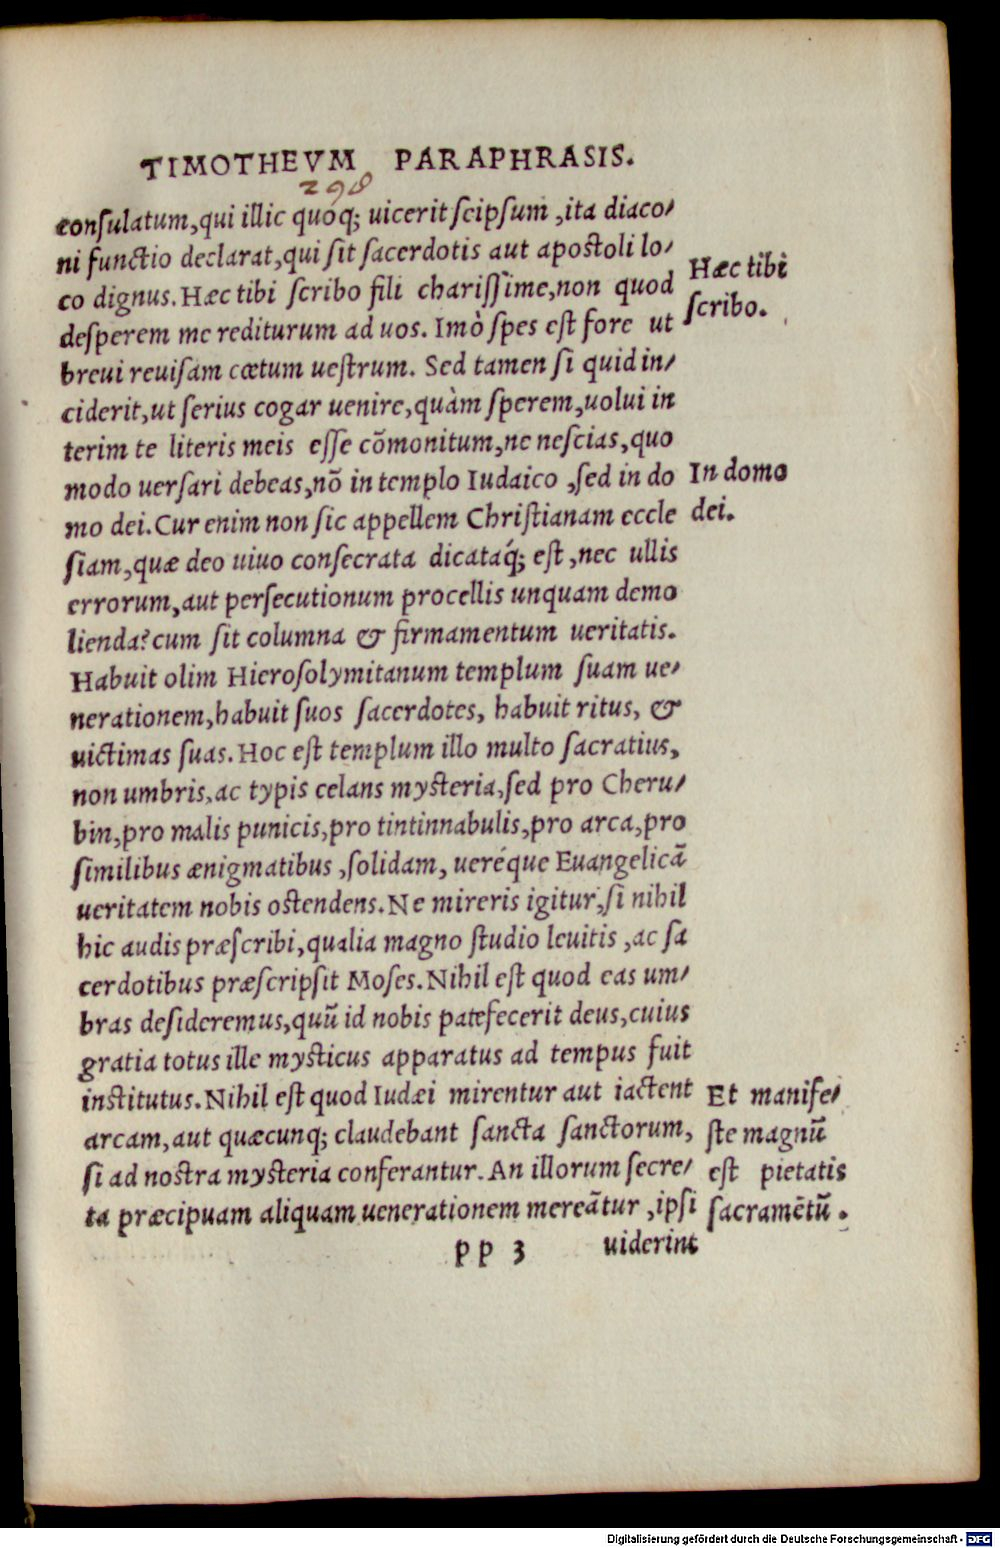 TIMOTHEVM PARAPHRASIS.
298
consulatum,qui illic quoq; uicerit seipsum ,ita diaco/
ni functio declarat,qui sit sacerdotis aut apostoli lo/
co dignus.Hæc tibi scribo fili charissime,non quod
desperem me rediturum ad uos. Imò spes est fore ut
breui reuisam cœtum uestrum. Sed tamen si quid in/
ciderit,ut serius cogar uenire,quàm sperem,uolui in
terim te literis meis esse cõmonitum,ne nescias,quo
modo uersari debeas,nõ in templo Iudaico ,sed in do
mo dei.Cur enim non sic appellem Christianam eccle
siam,quæ deo uiuo consecrata dicataq́; est ,nec ullis
errorum,aut persecutionum procellis unquam demo
lienda?cum sit columna & firmamentum ueritatis.
Habuit olim Hierosolymitanum templum suam ue/
nerationem,habuit suos sacerdotes, habuit ritus, &
uictimas suas.Hoc est templum illo multo sacratius,
non umbris,ac typis celans mysteria,sed pro Cheru/
bin,pro malis punicis,pro tintinnabulis,pro arca,pro
similibus ænigmatibus ,solidam, ueréque Euangelicã
ueritatem nobis ostendens.Ne mireris igitur,si nihil
hic audis præscribi,qualia magno studio leuitis ,ac sa
cerdotibus præscripsit Moses.Nihil est quod eas um/
bras desideremus,quũ id nobis patefecerit deus,cuius
gratia totus ille mysticus apparatus ad tempus fuit
institutus.Nihil est quod Iudæi mirentur aut iactent
arcam,aut quæcunq; claudebant sancta sanctorum,
si ad nostra mysteria conferantur.An illorum secre/
ta præcipuam aliquam uenerationem mereãtur ,ipsi
pp 3 uiderint
Hæc tibi
scribo.
In domo
dei.
Et manife/
ste magnũ
est pietatis
sacramẽtũ.
Digitalisierung gefördert durch die Deutsche Forschungsgemeinschaft - DFG